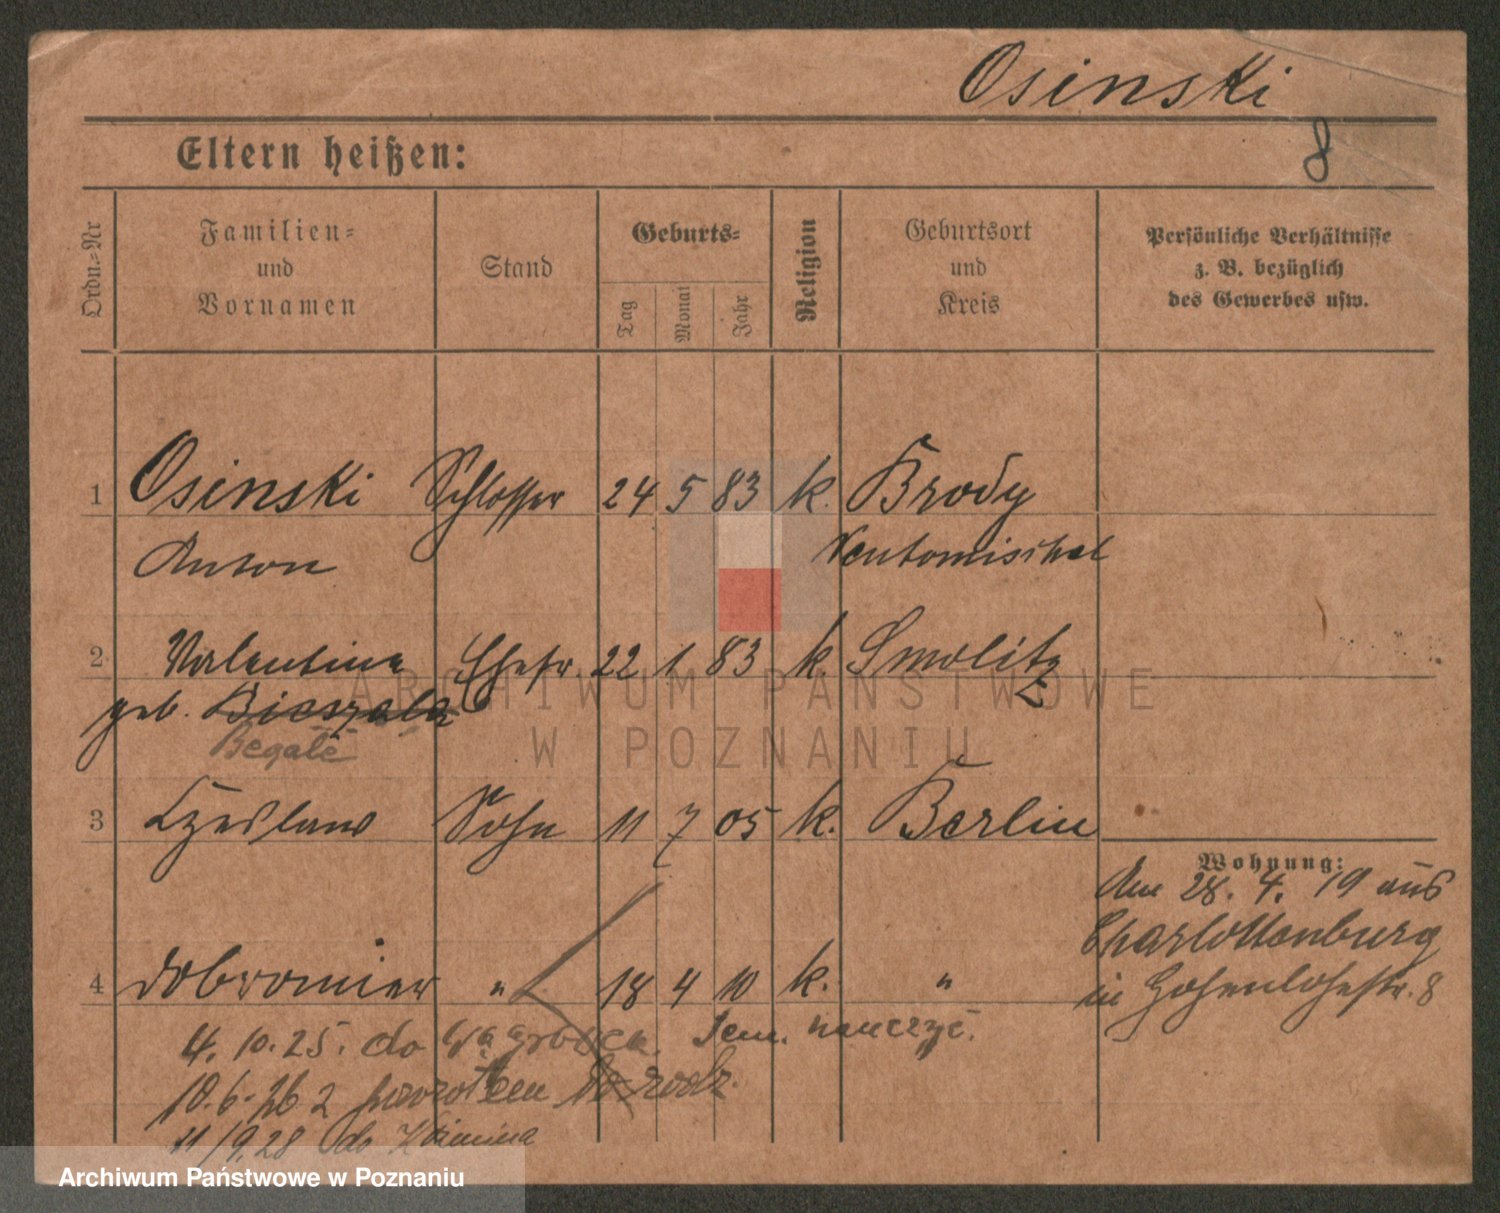 Osinski
8
Eltern heißen:
Ordn.-Nr
Familien- und Vornamen
Stand
Geburts-
Tag
Monat
Jahr
Religion
Geburtsort und Kreis
Persönliche Verhältnisse
z. B. bezüglich
des Gewerbes usw.
1 Osinski Schlosser 24 5 83 k. Brody
Anton Neutomischel
2 Valentine Ehefr. 22 1 83 k. Smolitz
geb. Bieszala
Begale
3 Czeslaus Sohn 11 7 05 k. Berlin
Wohnung:
den 28. 4. 19 aus
Charlottenburg
in Hohenlohestr. 8
4 Dobromier " 18 4 10 k. "
4. 10. 25. do Wągrowca. Sem. nauczyc.
10. 6. 26 z powrotem do rodz.
11/9.28 do
ARCHIWUM PAŃSTWOWE
W POZNANIU
Archiwum Państwowe w Poznaniu